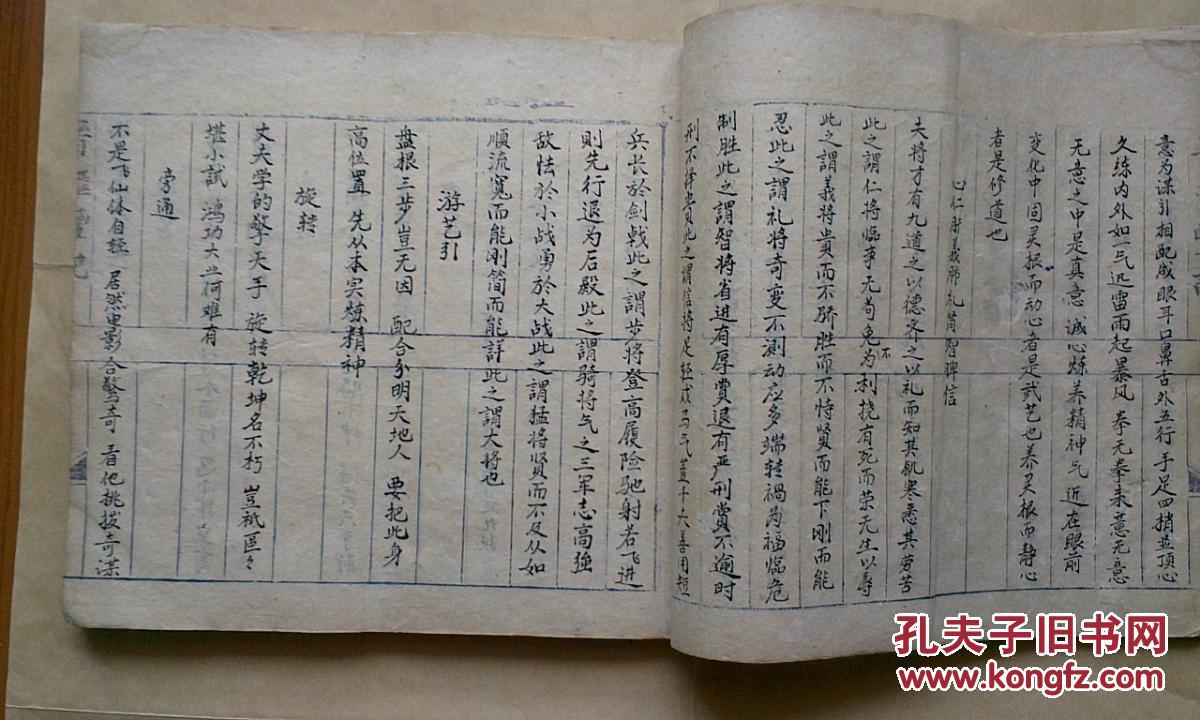 意为谋引相配成眼耳口鼻舌外五行手足四捎並顶心
久练内外如一气迅雷雨起暴风拳无拳来意无意
无意之中是真意诚心炼养精神气近在眼前
变化中同灵根而动心者是武艺也养灵根而静心
者是修道也
心仁肝義肺礼肾智脾信
夫将才有九道之以德齐之以礼而知其飢寒悉其劳苦
此之謂仁将临事无苟免不为利挠有死而荣无生以辱
此之謂義将貴而不骄胜而不恃賢而能下刚而能
忍此之謂礼将奇变不測动应多端转禍为福临危
制胜此之謂智将省进有厚賞退有严刑賞不逾时
刑不择貴此之謂信将足轻戎马气蓋千夫善用短
兵长於剑戟此之謂步将登高履险驰射若飞进
則先行退为后殿此之謂骑将气之三军志高強
敌怯於小战勇於大战此之謂猛将贤而不及从如
順流寬而能刚简而能詳此之謂大将也
游艺引
盘根三步豈无因 配合分明天地人 要把此身
高位置 先从本实炼精神
旋转
丈夫学的擎天手 旋转乾坤名不朽 豈祇區々
堪小試 鴻功大业何难有
旁通
不是飞仙体自轻 居然电影合驚奇 看他挑拨奇谋
孔夫子旧书网
www.kongfz.com